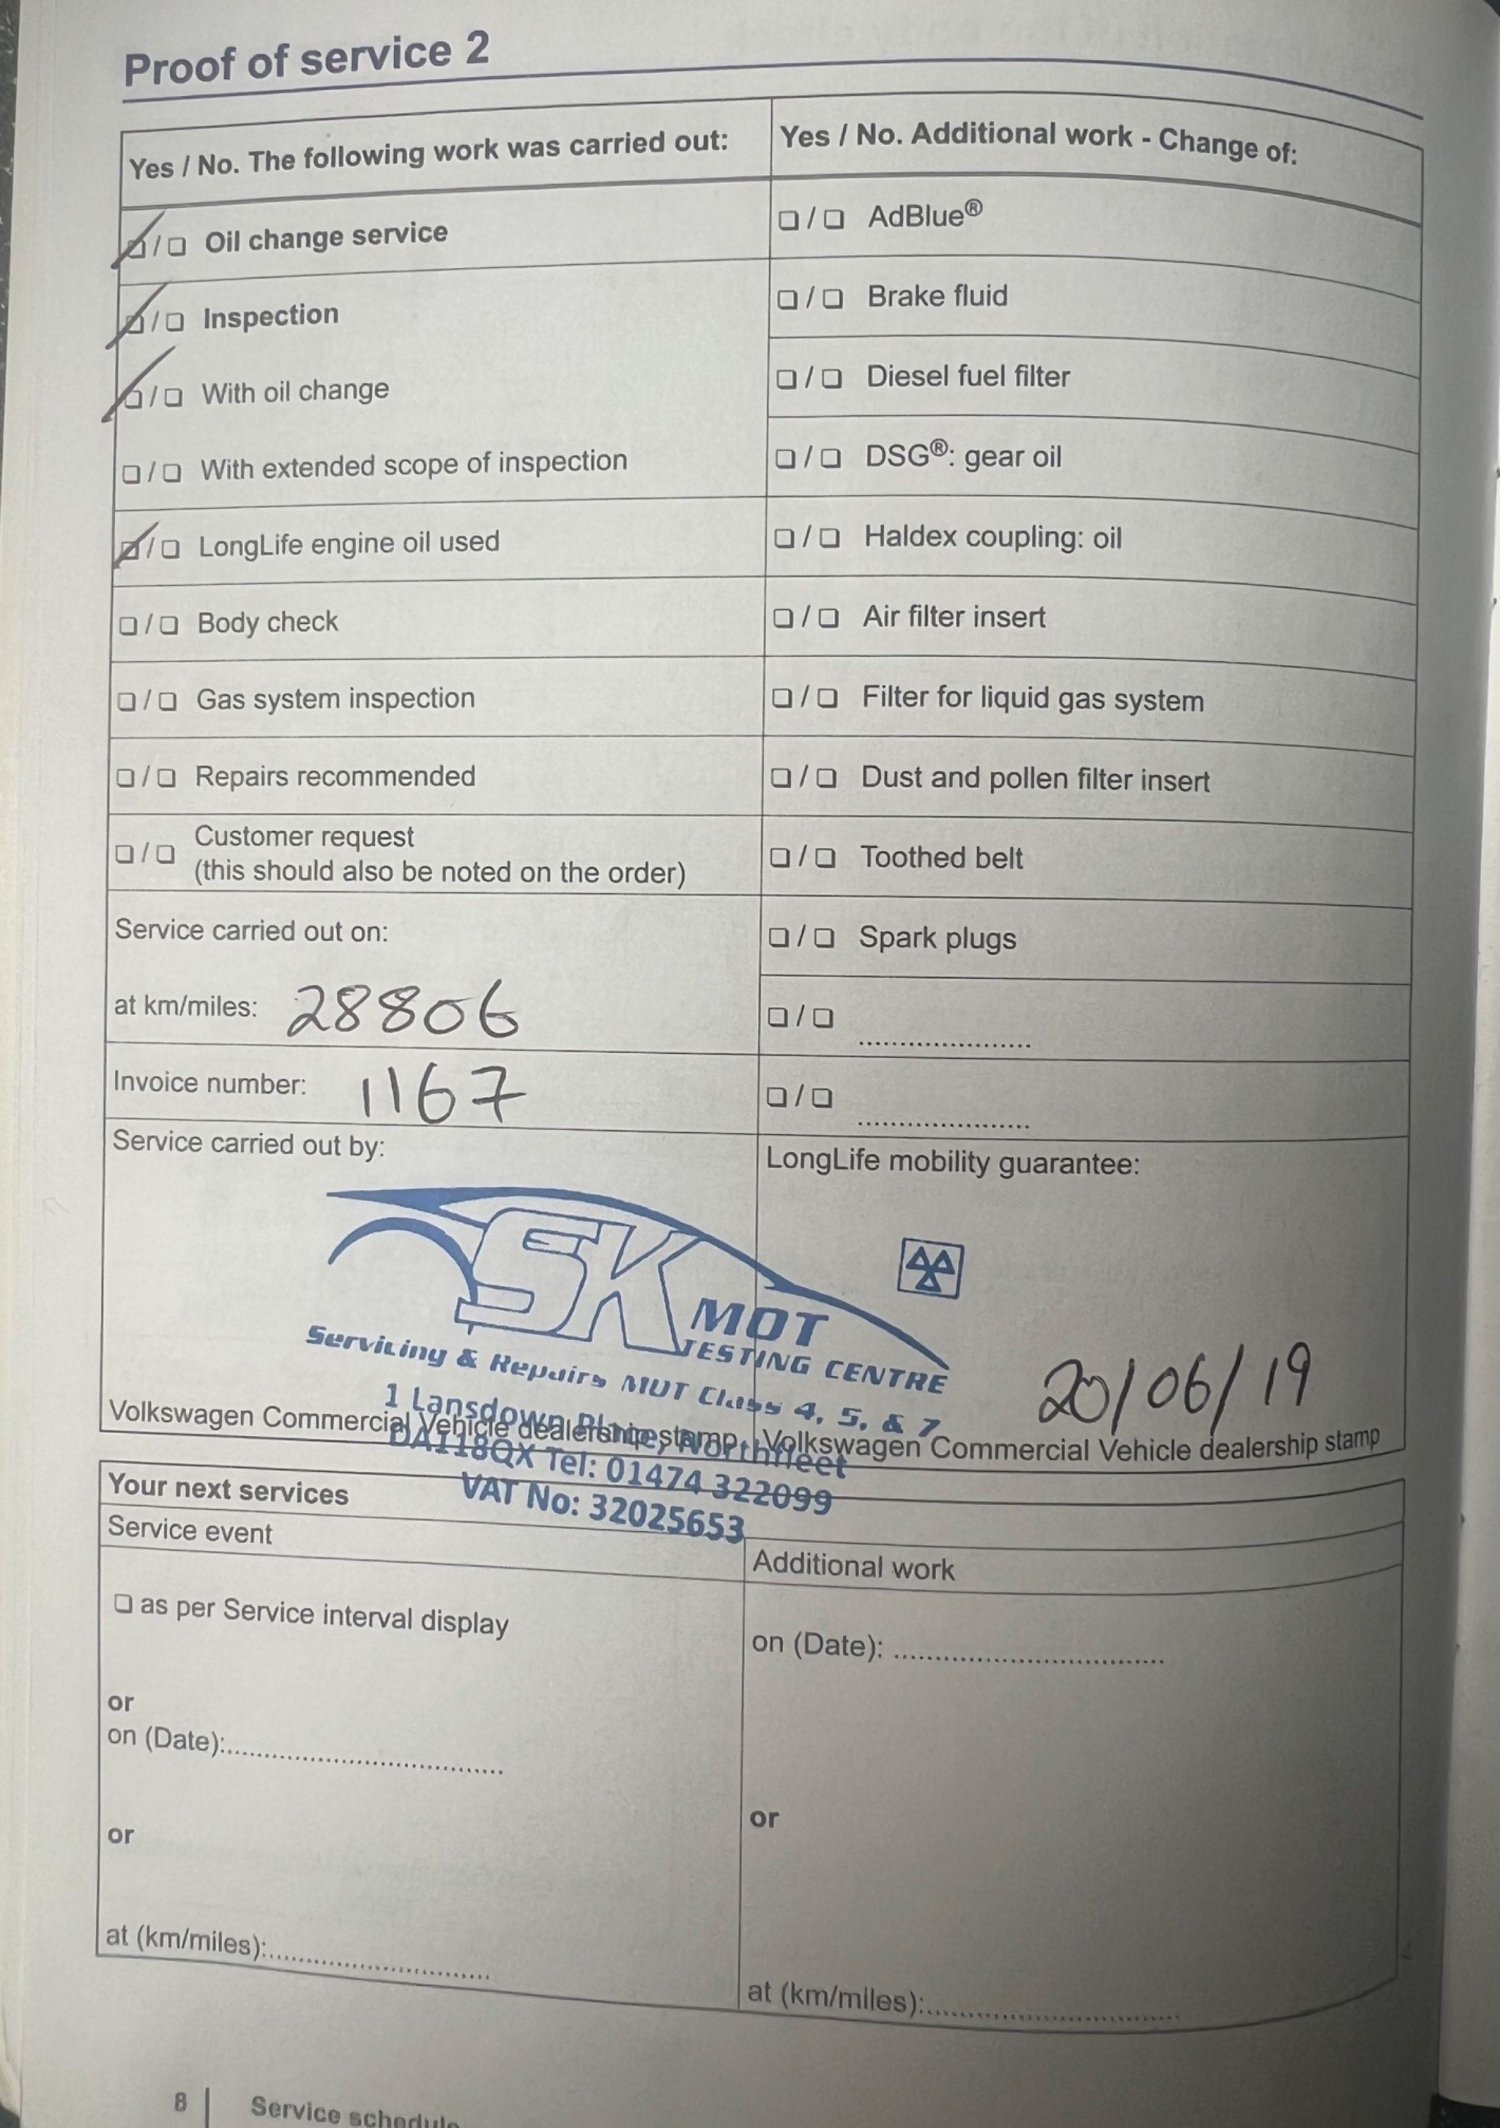 Proof of service 2
Yes / No. The following work was carried out:
☐ / ☐ Oil change service
☐ / ☐ Inspection
☐ / ☐ With oil change
☐ / ☐ With extended scope of inspection
☐ / ☐ LongLife engine oil used
☐ / ☐ Body check
☐ / ☐ Gas system inspection
☐ / ☐ Repairs recommended
☐ / ☐ Customer request
(this should also be noted on the order)
Service carried out on:
at km/miles: 28806
Invoice number: 1167
Service carried out by:
Yes / No. Additional work - Change of:
☐ / ☐ AdBlue®
☐ / ☐ Brake fluid
☐ / ☐ Diesel fuel filter
☐ / ☐ DSG®: gear oil
☐ / ☐ Haldex coupling: oil
☐ / ☐ Air filter insert
☐ / ☐ Filter for liquid gas system
☐ / ☐ Dust and pollen filter insert
☐ / ☐ Toothed belt
☐ / ☐ Spark plugs
☐ / ☐ ....................
☐ / ☐ ....................
LongLife mobility guarantee:
SK MOT
TESTING CENTRE
Servicing & Repairs MOT Class 4, 5, & 7
1 Lansdown Place, Northfleet
DA118QX Tel: 01474 322099
VAT No: 32025653
20/06/19
Volkswagen Commercial Vehicle dealership stamp
Volkswagen Commercial Vehicle dealership stamp
Your next services
Service event
☐ as per Service interval display
or
on (Date):..............................
or
at (km/miles):.........................
Additional work
on (Date): ..............................
or
at (km/miles):.............................
8 | Service schedule